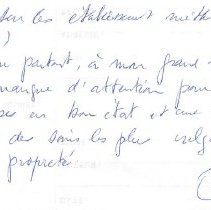 les établissement
partant, à mon grand
manque d'attention pour
en bon état et une
des soins les plus
propreté